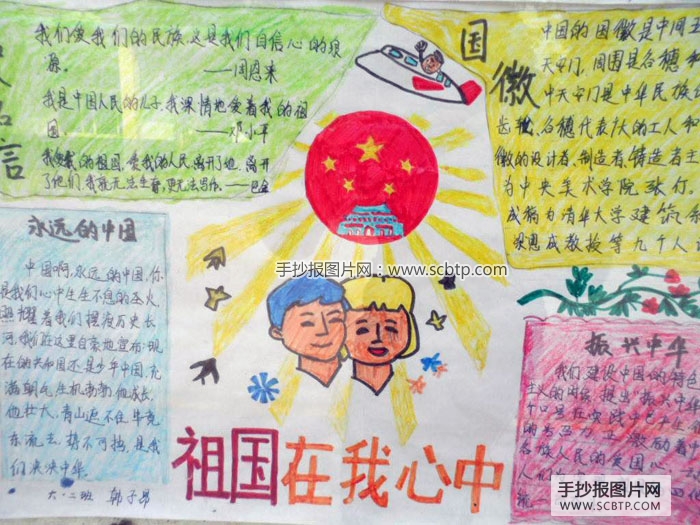 名言
我们爱我们的民族,这是我们自信心的泉
源。
——周恩来
我是中国人民的儿子,我深情地爱着我的祖
国。
——邓小平
我爱我的祖国,爱我的人民,离开了她,离开
了他们,我就无法生存,更无法写作。——巴金
国徽
中国的国徽是中间五
天安门,周围是谷穗和
中天安门是中华民族
齿轮、谷穗代表大的工人和
徽的设计者、制造者、铸造者主
为中央美术学院张仃
成稿为清华大学建筑
梁思成教授等九个人
永远的中国
中国啊,永远的中国,你
是我们心中生生不息的圣火,
照耀着我们摆渡历史长
河,我们在这里自豪地宣布:现
在的共和国还是少年中国,充
满朝气,生机勃勃,他成长,
他壮大,青山遮不住,毕竟
东流去,势不可挡,是我
们泱泱中华。
六·二班 韩子昂
手抄报图片网:www.scbtp.com
振兴中华
我们建设中国的特色
主义的内容,提出"振兴中
各族人民的爱国心
祖国在我心中
手抄报图片网
WWW.SCBTP.COM